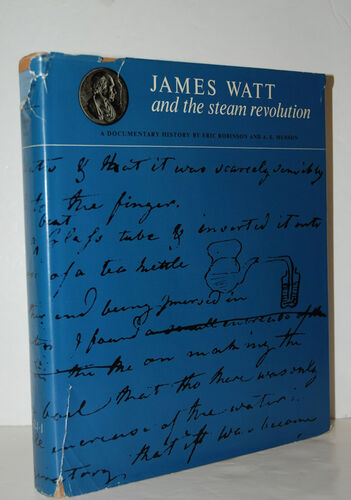 JAMES WATT
and the steam revolution
A DOCUMENTARY HISTORY BY ERIC ROBINSON AND A. E. MUSSON
& that it was scarcely sensibly
the finger.
Glass tube & inserted it into
of a tea kettle
and being immersed in
I found a small increase of the
the on making the
that tho there was only
increase of the water
that it was become